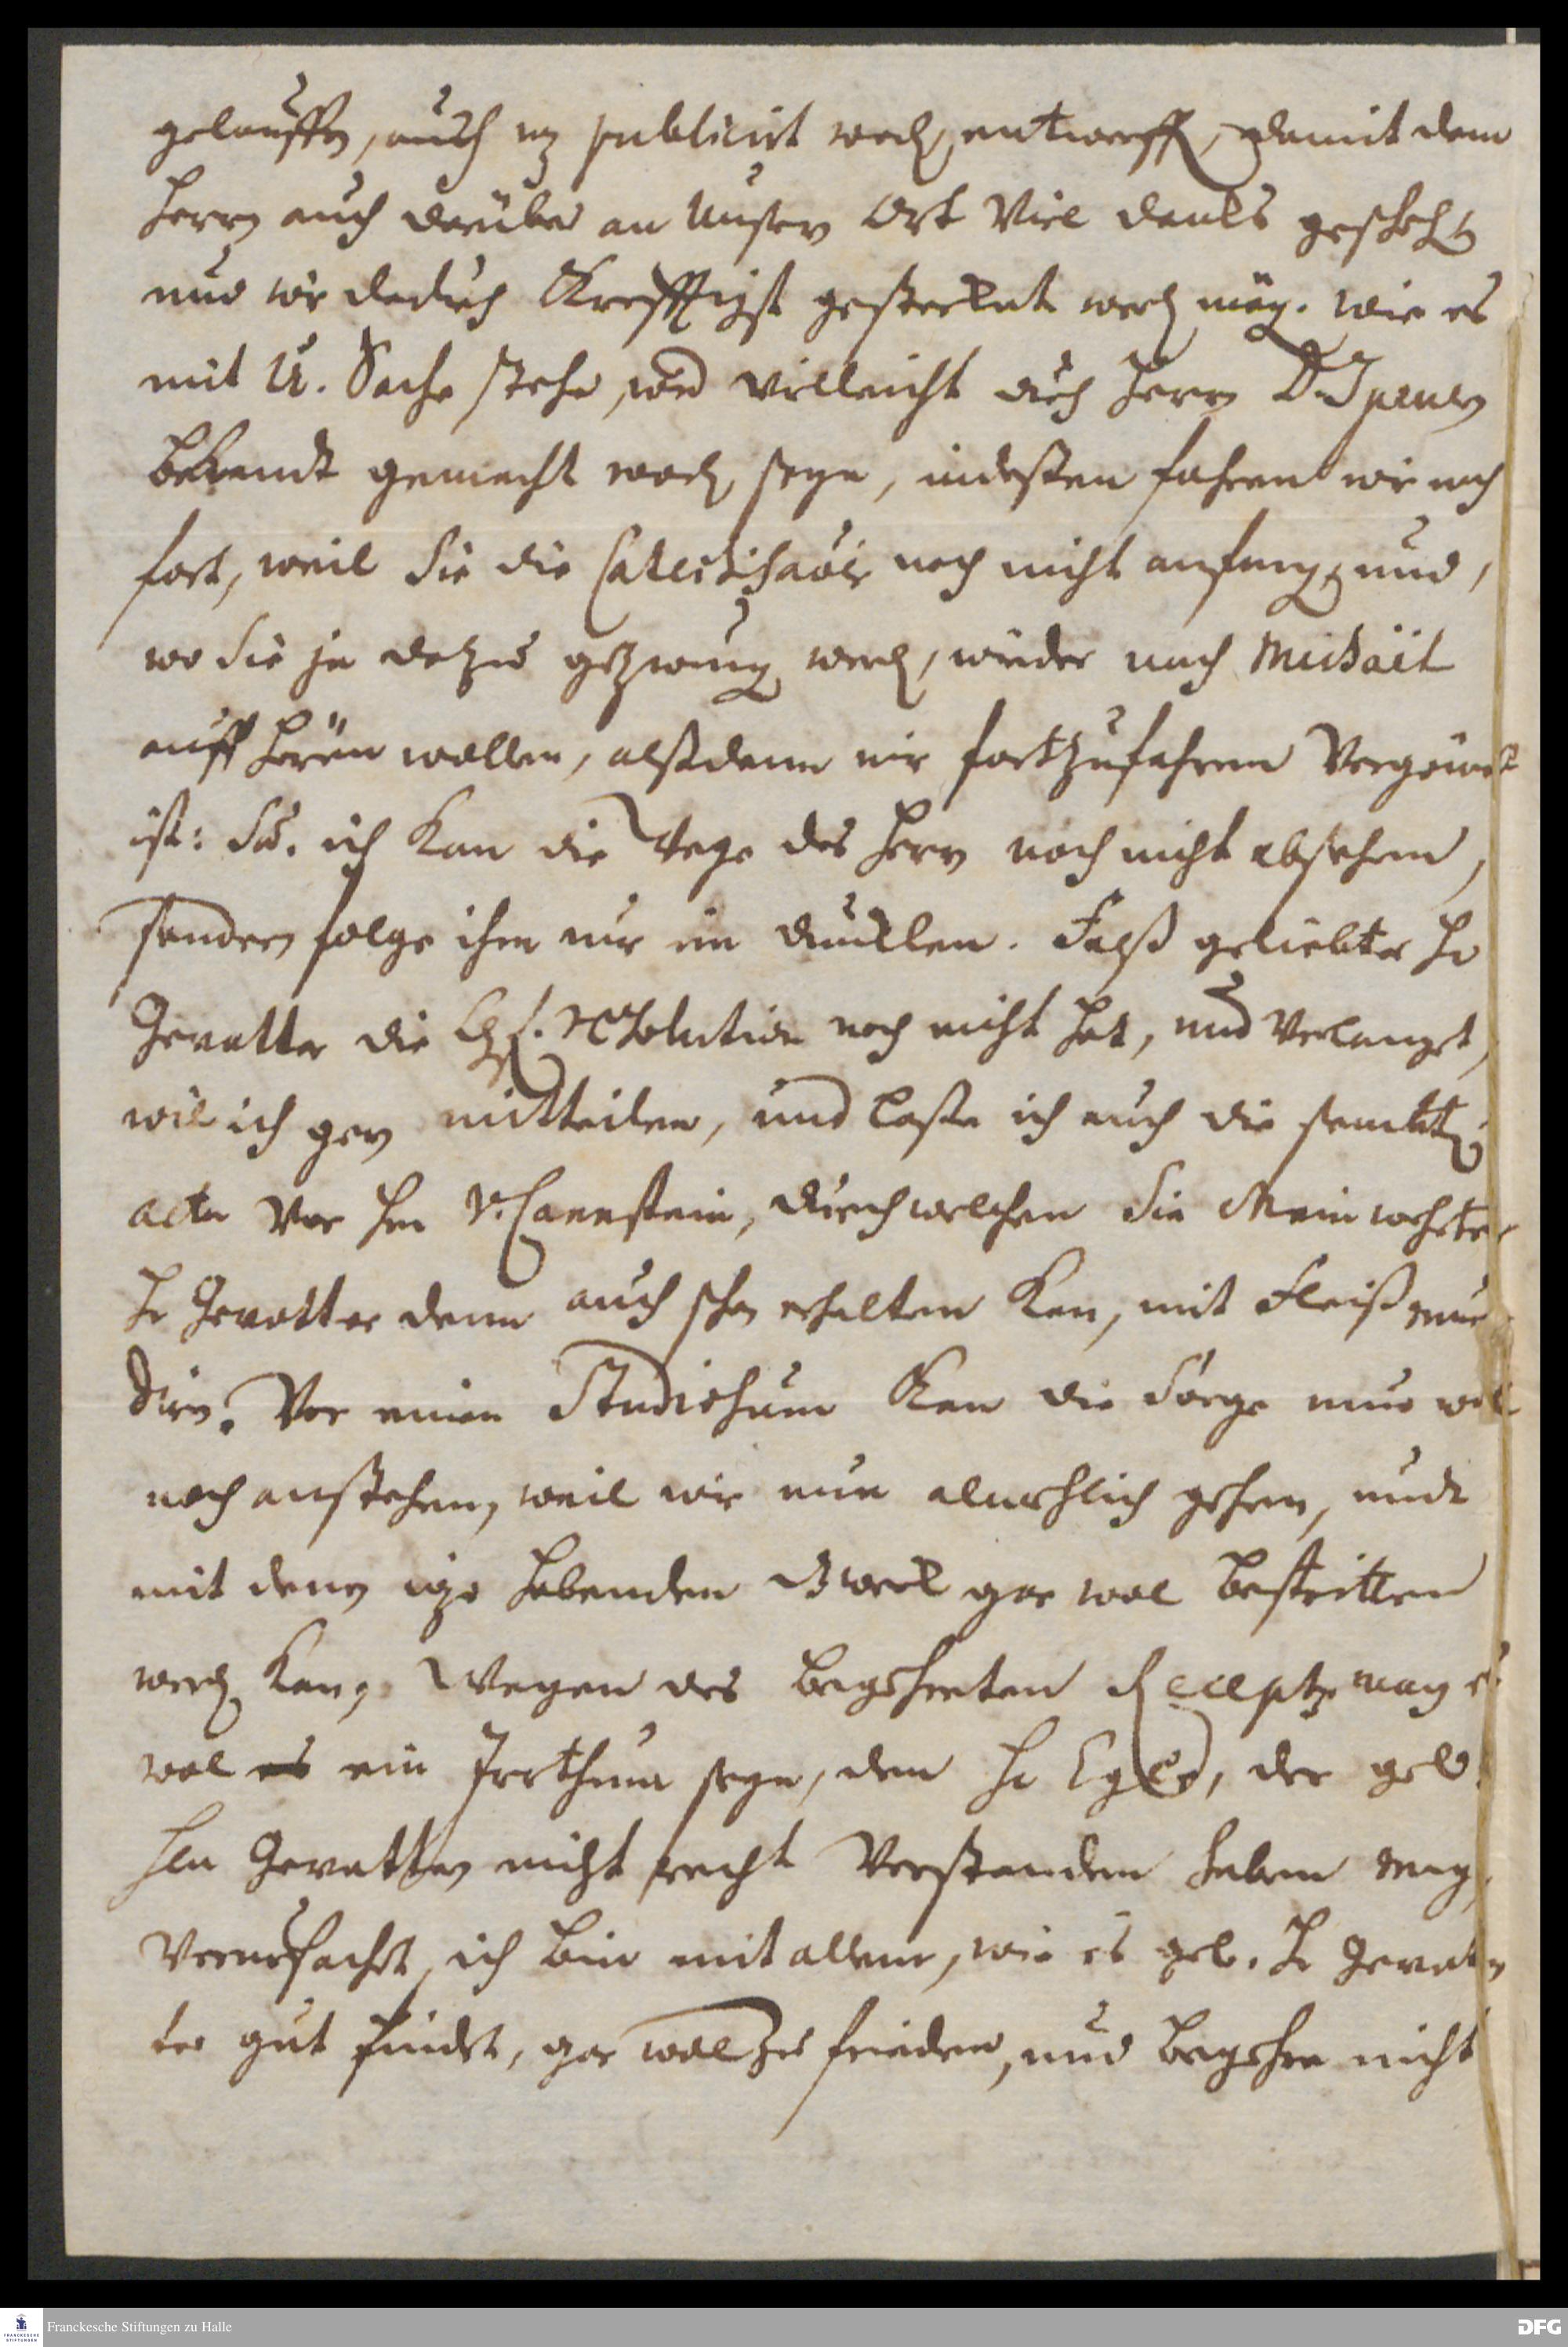 gelauffen, auch nz publicirt werden, entwerffen, damit dem
Herrn auch darüber an Unsern Ort Viel dancks geschehe
und wir dadurch Krefftigst gestercket werden mögen. Wie es
mit U. Sache stehe, wird villeicht durch Herrn D. Spenern
bekandt gemacht worden seyn, indeßen fahren wir noch
fort, weil Sie die noch nicht anfangen, und,
wo Sie ja dazu gezwungen werden, wieder nach Michaël
auff hören wollen, alßdenn wir fortzufahren
ist: Sw. ich Kan die Wege des Herrn noch nicht absehen,
sondern folge ihm nur im duncklen. Falß geliebter H
Gevatter die Chf. resolution noch nicht hat, und Verlanget,
wil ich gern mitteilen, und laße ich auch die semtl.
acta Vor Hn v. Cannstein, durch welchen Sie Mein wehrter
H Gevatter denn auch schon erhalten Kan, mit Fleiß mun
diren. Vor einen Studiosum Kan die Sorge nun wol
noch anstehen, weil wir nun gehen, undt
mit denen izo habenden gar wol bestritten
werden Kan, Wegen des begehrten Recepts mag es
wol ein Irrthum seyn, den H , der gel.
Hn Gevattern nicht recht Verstanden haben mag,
Verursachet, ich bin mit allem, wie es gel. H Gevat
ter gut findet, gar wol zu frieden, und begehre nicht
Franckesche Stiftungen zu Halle
DFG